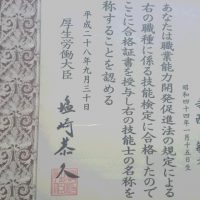 昭和四十四年一月十五日生
あなたは職業能力開発促進法の規定による
右の職種に係る技能検定に合格したので
ここに合格証書を授与し右の技能士の名称を
称することを認める
平成二十八年九月三十日
厚生労働大臣
塩崎恭久